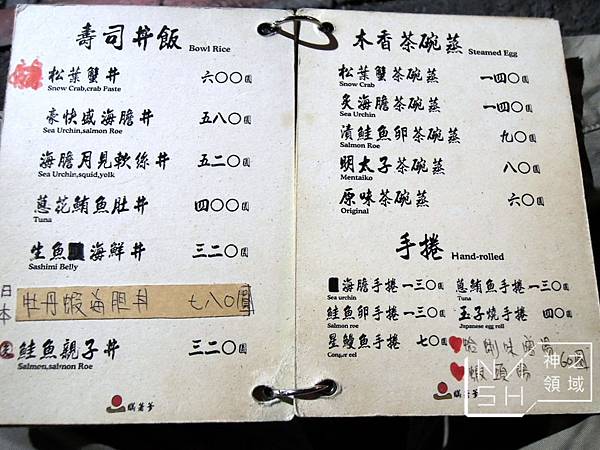 壽司丼飯 Bowl Rice
松葉蟹丼 六〇〇圓
Snow Crab,crab Paste
豪快盛海膽丼 五八〇圓
Sea Urchin,salmon Roe
海膽月見軟絲丼 五二〇圓
Sea Urchin,squid,yolk
蔥花鮪魚肚丼 四〇〇圓
Tuna
生魚 海鮮丼 三二〇圓
Sashimi Belly
日本 牡丹蝦海胆丼 七八〇圓
鮭魚親子丼 三二〇圓
Salmon,salmon Roe
木香茶碗蒸 Steamed Egg
松葉蟹茶碗蒸 一四〇圓
Snow Crab
炙海膽茶碗蒸 一四〇圓
Sea Urchin
漬鮭魚卵茶碗蒸 九〇圓
Salmon Roe
明太子茶碗蒸 八〇圓
Mentaiko
原味茶碗蒸 六〇圓
Original
手捲 Hand-rolled
海膽手捲 一三〇圓 蔥鮪魚手捲 一三〇圓
Sea urchin Tuna
鮭魚卵手捲 一三〇圓 玉子燒手捲 四〇圓
Salmon roe Japanese egg roll
星鰻魚手捲 七〇圓
Conger eel
蛤蜊味噌湯
蝦頭湯 60圓
神之領域